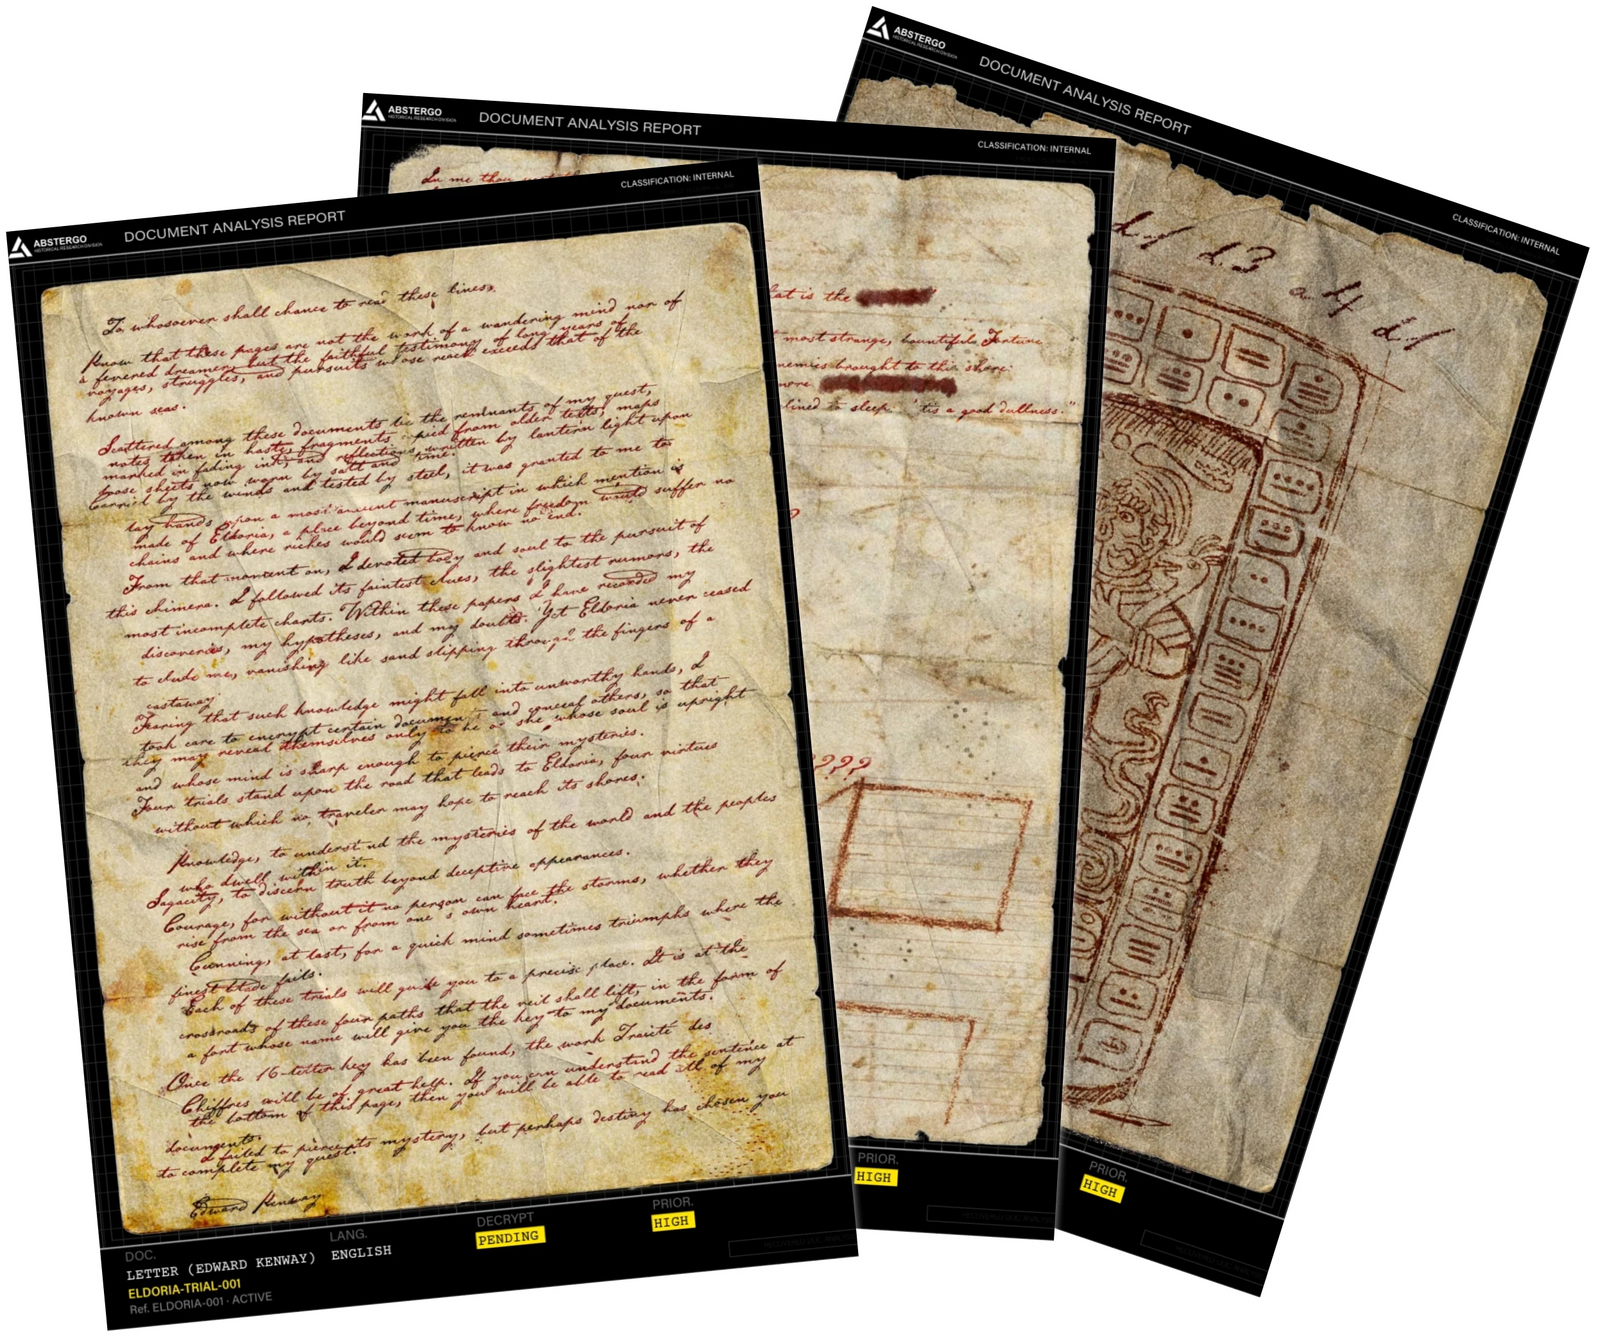 ABSTERGO
HISTORICAL RESEARCH DIVISION
DOCUMENT ANALYSIS REPORT
CLASSIFICATION: INTERNAL
To whosoever shall chance to read these lines,
Know that these pages are not the work of a wandering mind nor of
a fevered dreamer, but the faithful testimony of long years of
voyages, struggles, and pursuits whose reach exceeds that of the
known seas.
Scattered among these documents lie the remnants of my quest,
notes taken in haste, fragments copied from older texts, maps
marked in fading ink, and reflections written by lantern light upon
loose sheets now worn by salt and time.
Carried by the winds and tested by steel, it was granted to me to
lay hands upon a most ancient manuscript in which mention is
made of Eldoria, a place beyond time, where freedom would suffer no
chains and where riches would seem to know no end.
From that moment on, I devoted body and soul to the pursuit of
this chimera. I followed its faintest clues, the slightest rumors, the
most incomplete charts. Within these papers I have recorded my
discoveries, my hypotheses, and my doubts. Yet Eldoria never ceased
to elude me, vanishing like sand slipping through the fingers of a
castaway.
Fearing that such knowledge might fall into unworthy hands, I
took care to encrypt certain documents and conceal others, so that
they may reveal themselves only to he or she whose soul is upright
and whose mind is sharp enough to pierce their mysteries.
Four trials stand upon the road that leads to Eldoria, four virtues
without which no traveler may hope to reach its shores.
Knowledge, to understand the mysteries of the world and the peoples
who dwell within it.
Sagacity, to discern truth beyond deceptive appearances.
Courage, for without it no person can face the storms, whether they
rise from the sea or from one's own heart.
Cunning, at last, for a quick mind sometimes triumphs where the
finest blade fails.
Each of these trials will guide you to a precise place. It is at the
crossroads of these four paths that the veil shall lift, in the form of
a fort whose name will give you the key to my documents.
Once the 16-letter key has been found, the work Traité des
Chiffres will be of great help. If you can understand the sentence at
the bottom of this page, then you will be able to read all of my
documents.
I failed to pierce its mystery, but perhaps destiny has chosen you
to complete my quest.
Edward Kenway
DOC.
LETTER (EDWARD KENWAY)
LANG.
ENGLISH
DECRYPT
PENDING
PRIOR.
HIGH
ELDORIA-TRIAL-001
Ref. ELDORIA-001 · ACTIVE
ABSTERGO
HISTORICAL RESEARCH DIVISION
DOCUMENT ANALYSIS REPORT
CLASSIFICATION: INTERNAL
In me thou
hat is the
most strange, bountiful Fortune
nemies brought to this shore:
more
clined to sleep. 'tis a good dullness."
?
????
PRIOR.
HIGH
ABSTERGO
HISTORICAL RESEARCH DIVISION
DOCUMENT ANALYSIS REPORT
CLASSIFICATION: INTERNAL
PRIOR.
HIGH